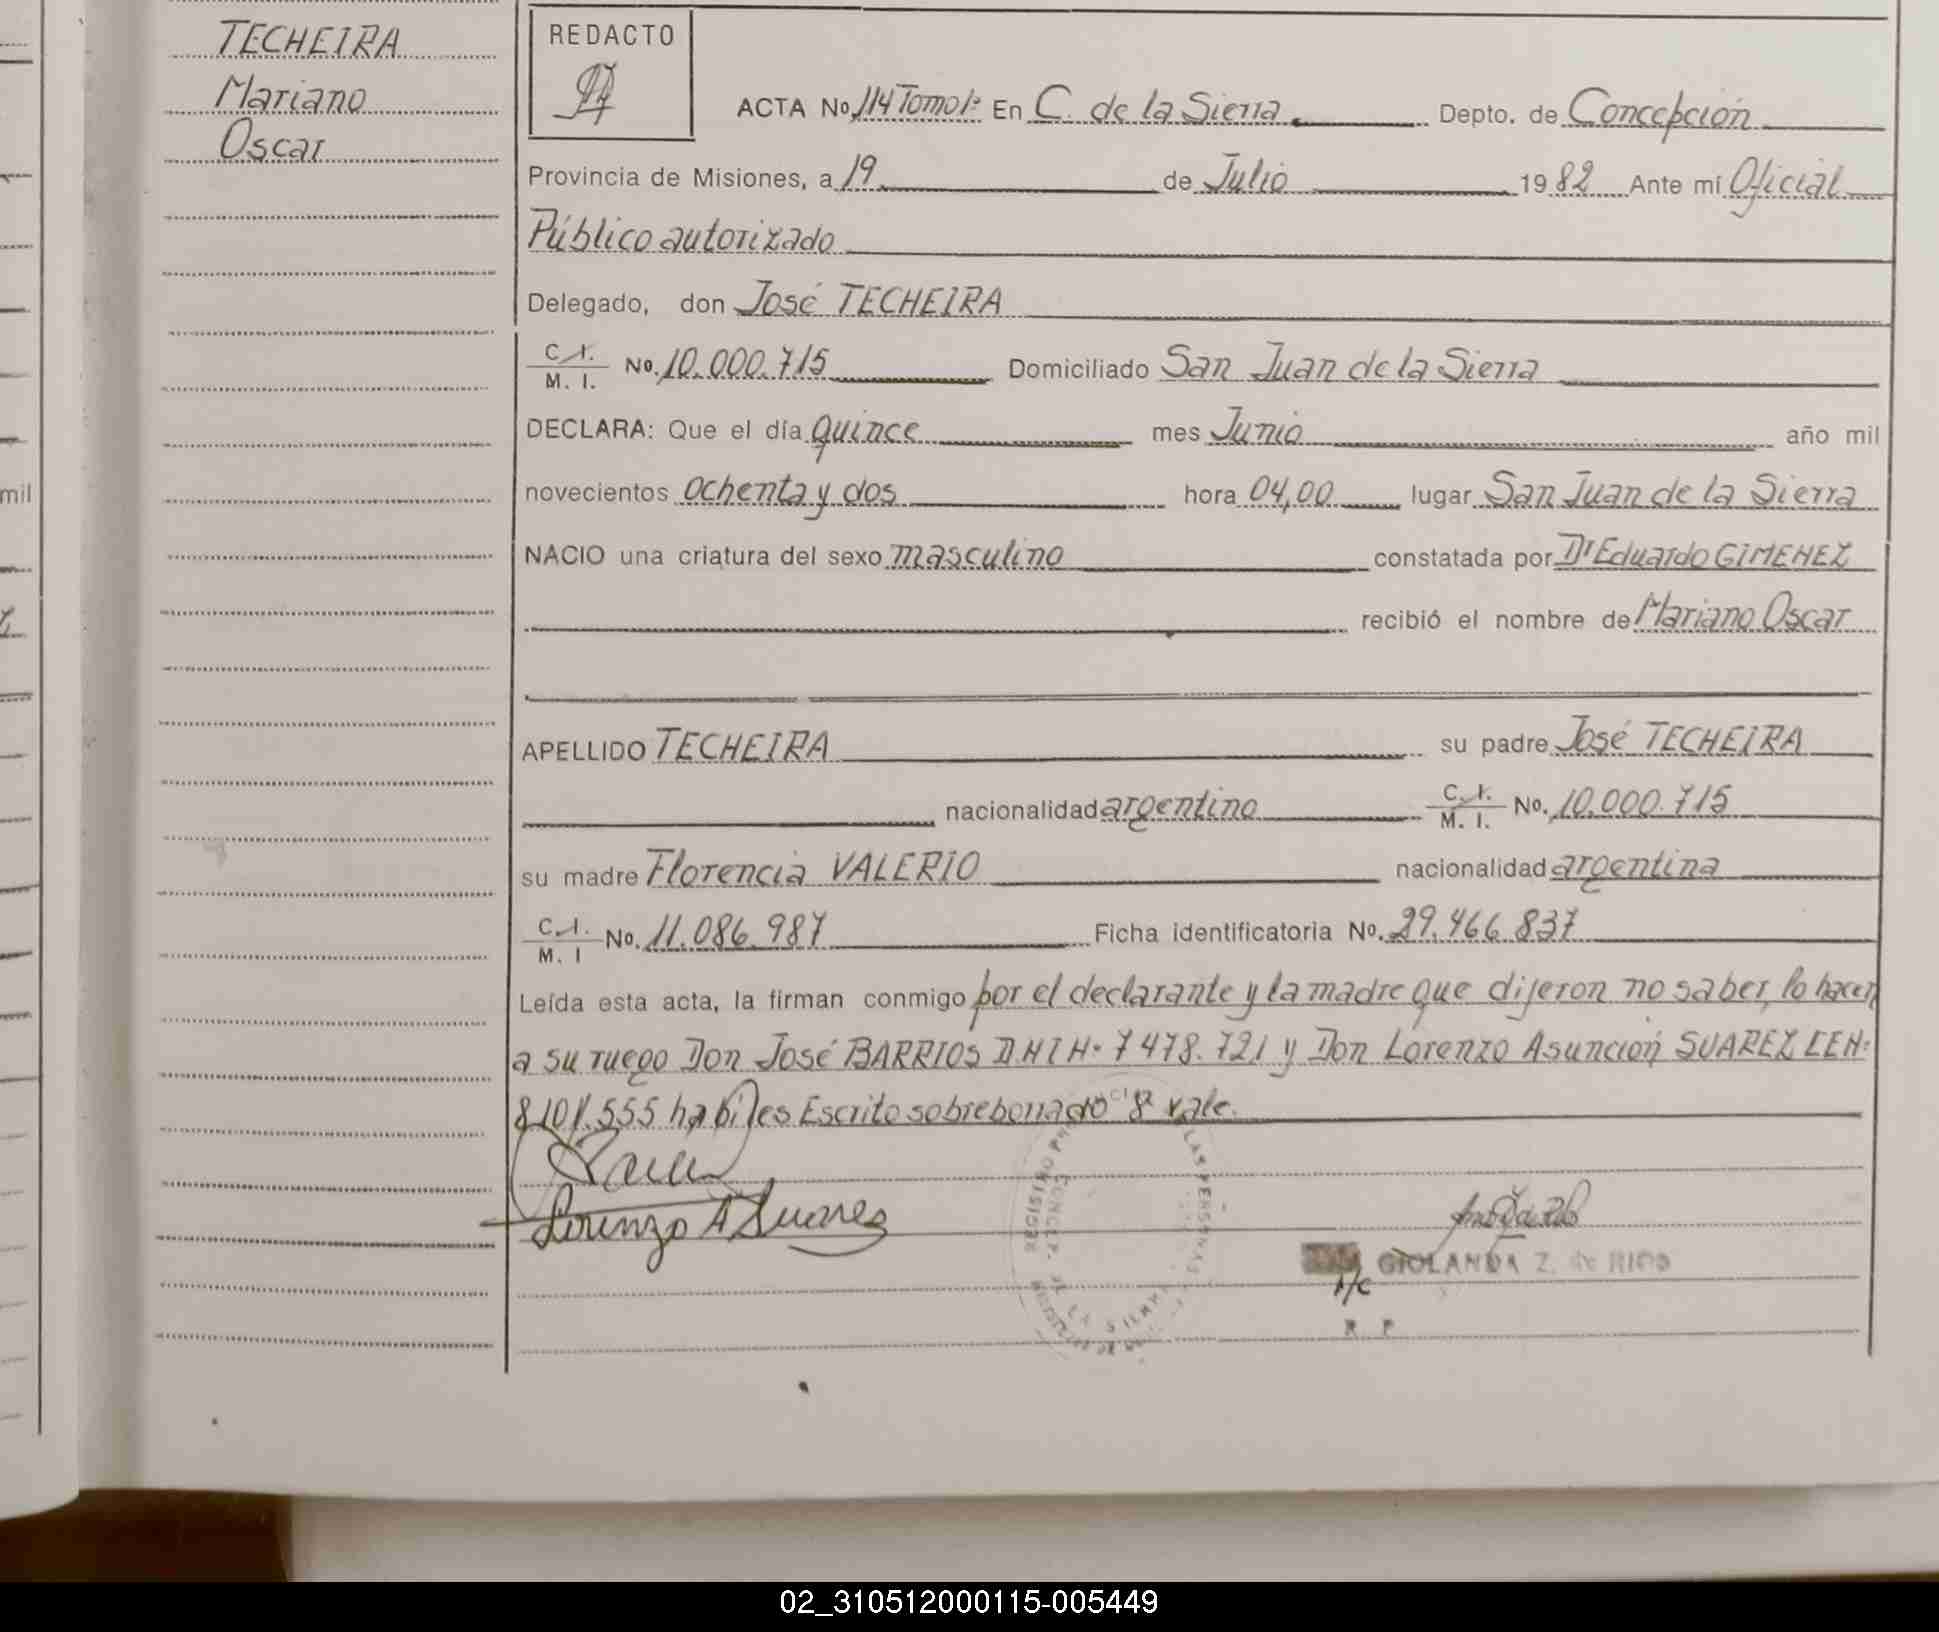 TECHEIRA
Mariano
Oscar
REDACTO
ACTA No. 114 Tomo 1º En C. de la Sierra Depto. de Concepción
Provincia de Misiones, a 19 de Julio 1982 Ante mi Oficial
Público autorizado
Delegado, don José TECHEIRA
C.I. M. I. No. 10.000.715 Domiciliado San Juan de la Sierra
DECLARA: Que el día quince mes Junio año mil
novecientos ochenta y dos hora 04,00 lugar San Juan de la Sierra
NACIO una criatura del sexo masculino constatada por Dr Eduardo GIMENEZ
recibió el nombre de Mariano Oscar
APELLIDO TECHEIRA su padre José TECHEIRA
nacionalidad argentino C. I. M. I. No. 10.000.715
su madre Florencia VALERIO nacionalidad argentina
C. I. M. I No. 11.086.987 Ficha identificatoria No. 29.466.837
Leída esta acta, la firman conmigo por el declarante y la madre que dijeron no saber, lo hacen
a su ruego Don José BARRIOS D.N.I Nº 7478.721 y Don Lorenzo Asunción SUAREZ L.E Nº
8101.555 habiles Escrito sobreborrado "8" vale.
Lorenzo A Suarez
GIOLANDA Z. de RIOS
A/C
R P
mil
02_310512000115-005449